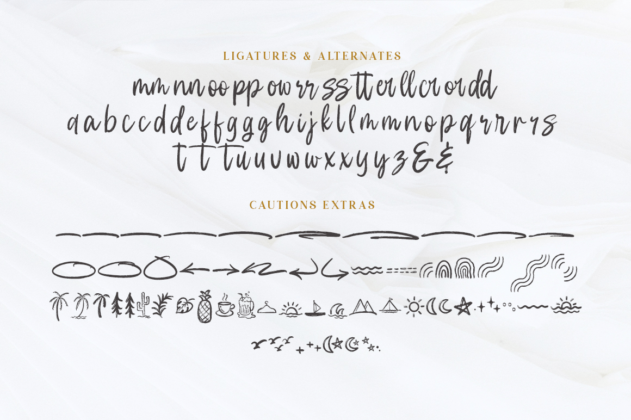 LIGATURES & ALTERNATES
mm nn oo pp ow rr ss tt er ll cr or dd
a a b c c d d e f f g g g h i j k l l m m n o p q r r r r s
t t t t u u v w w x x y y z & &
CAUTIONS EXTRAS